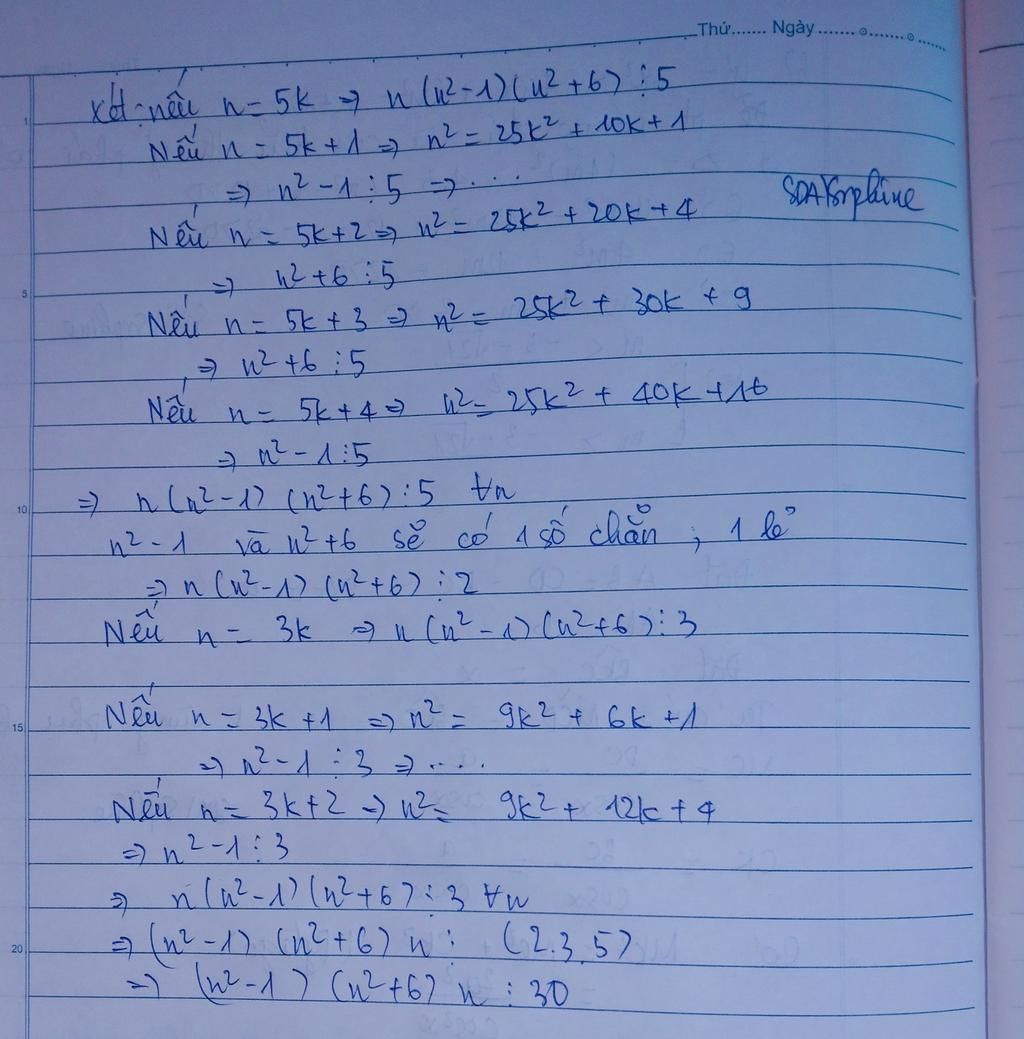 Thứ....... Ngày ....... ....... .......
Xét: nếu n = 5k => n(n²-1)(n²+6) ⋮ 5
Nếu n = 5k+1 => n² = 25k² + 10k + 1
=> n² - 1 ⋮ 5 => ...
Nếu n = 5k+2 => n² = 25k² + 20k + 4
=> n² + 6 ⋮ 5
Nếu n = 5k + 3 => n² = 25k² + 30k + 9
=> n² + 6 ⋮ 5
Nếu n = 5k + 4 => n² = 25k² + 40k + 16
=> n² - 1 ⋮ 5
=> n(n²-1)(n²+6) ⋮ 5 ∀n
n² - 1 và n² + 6 sẽ có 1 số chẵn ; 1 lẻ
=> n(n²-1)(n²+6) ⋮ 2
Nếu n = 3k => n(n²-1)(n²+6) ⋮ 3
Nếu n = 3k + 1 => n² = 9k² + 6k + 1
=> n² - 1 ⋮ 3 => ....
Nếu n = 3k+2 => n² = 9k² + 12k + 4
=> n² - 1 ⋮ 3
=> n(n²-1)(n²+6) ⋮ 3 ∀n
=> (n²-1)(n²+6) n ⋮ (2.3.5)
=> (n²-1)(n²+6) n ⋮ 30
1
5
10
15
20